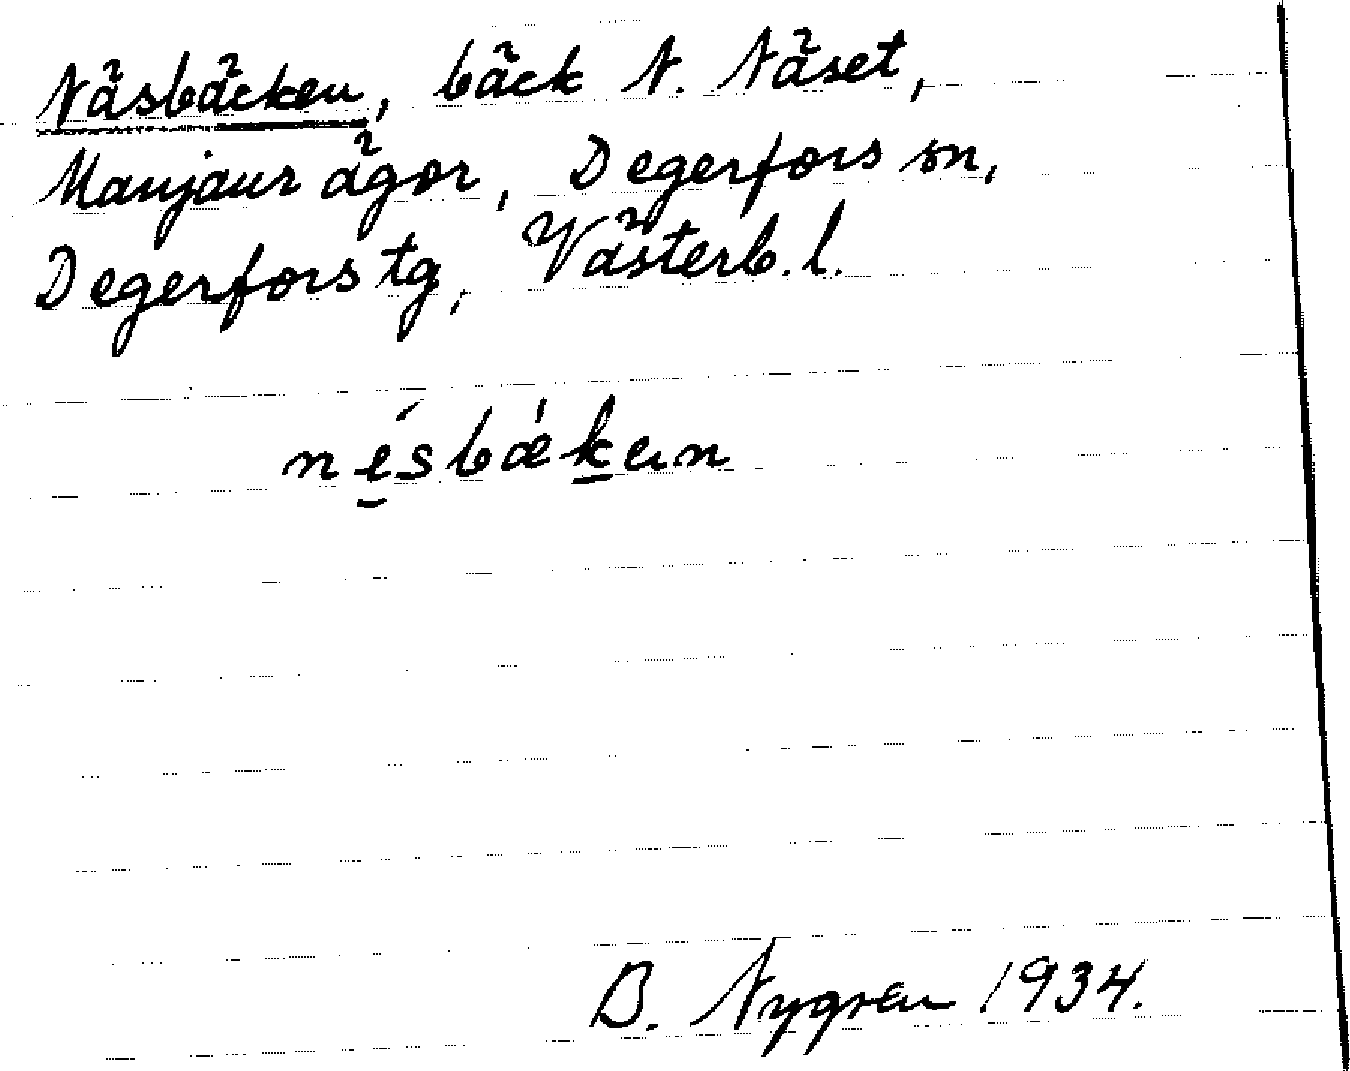 Näsbäcken, bäck N. Näset,
Manjaur ägor, Degerfors sn,
Degerfors tg, Västerb. l.
nésbǽken
B. Nygren 1934.